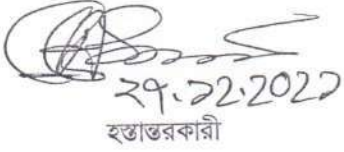 ২৭.১২.২০২১
হস্তান্তরকারী